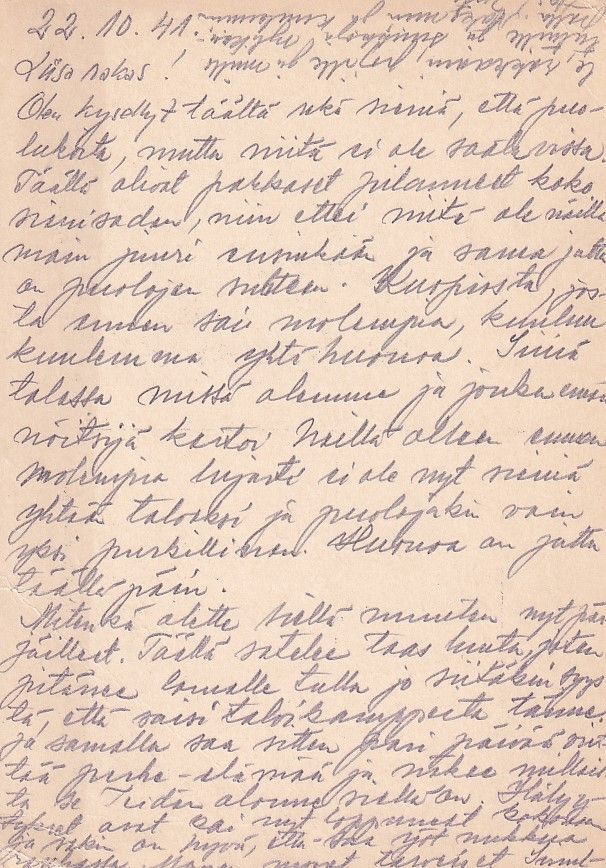 22.10.41.
Liisa rakas!
Olen kysellyt täältä sekä sieniä, että puo-
lukoita, mutta niitä ei ole saatavissa
Täällä olivat pakkaset pilanneet koko
sienisadon, niin ettei niitä ole näillä
main juuri ensinkään ja sama juttu
on puolojen suhteen. Kuopiosta, jos-
ta ennen sai molempia, kuuluu
kuulemma yhtä huonoa. Siinä
talossa missä olemme ja jonka
kertoi heillä olleen ennen
molempia lujasti ei ole nyt sieniä
yhtään talossa ja puolojakin vain
yksi purkillinen. Huonoa on juttu
täällä päin.
Mitenkä olette siellä muuten nyt pär-
jäilleet. Täällä satelee taas lunta, joten
pitänee lomalle tulla jo siitäkin syys-
tä, että saisi talvikamppeita tänne.
ja samalla saa sitten pari päivää viet-
tää perhe-elämää ja näkee millais-
ta se Teidän olonne siellä on. Hälyy-
tykset ovat kai nyt loppuneet kokonaan
ja sekin on hyvä, että saa yöt nukkua